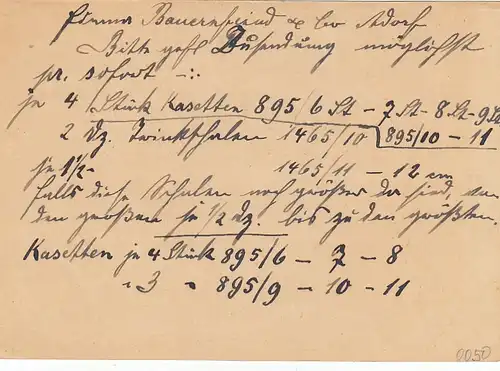 Firma Bauernfeind & Co Adorf
Bitte gefl Zusendung möglichst
pr. sofort -:.
je 4 Stück Kasetten 895/6 St - 7 St - 8 St - 9 St
2 Dz. Trinkschalen 1465/10 895/10 - 11
je 1½ - 1465/11 - 12 cm
falls diese Schalen noch größer da sind, von
den großen je 1/2 Dz. bis zu den größten.
Kasetten je 4 Stück 895/6 - 7 - 8
" 3 " 895/9 - 10 - 11
0050